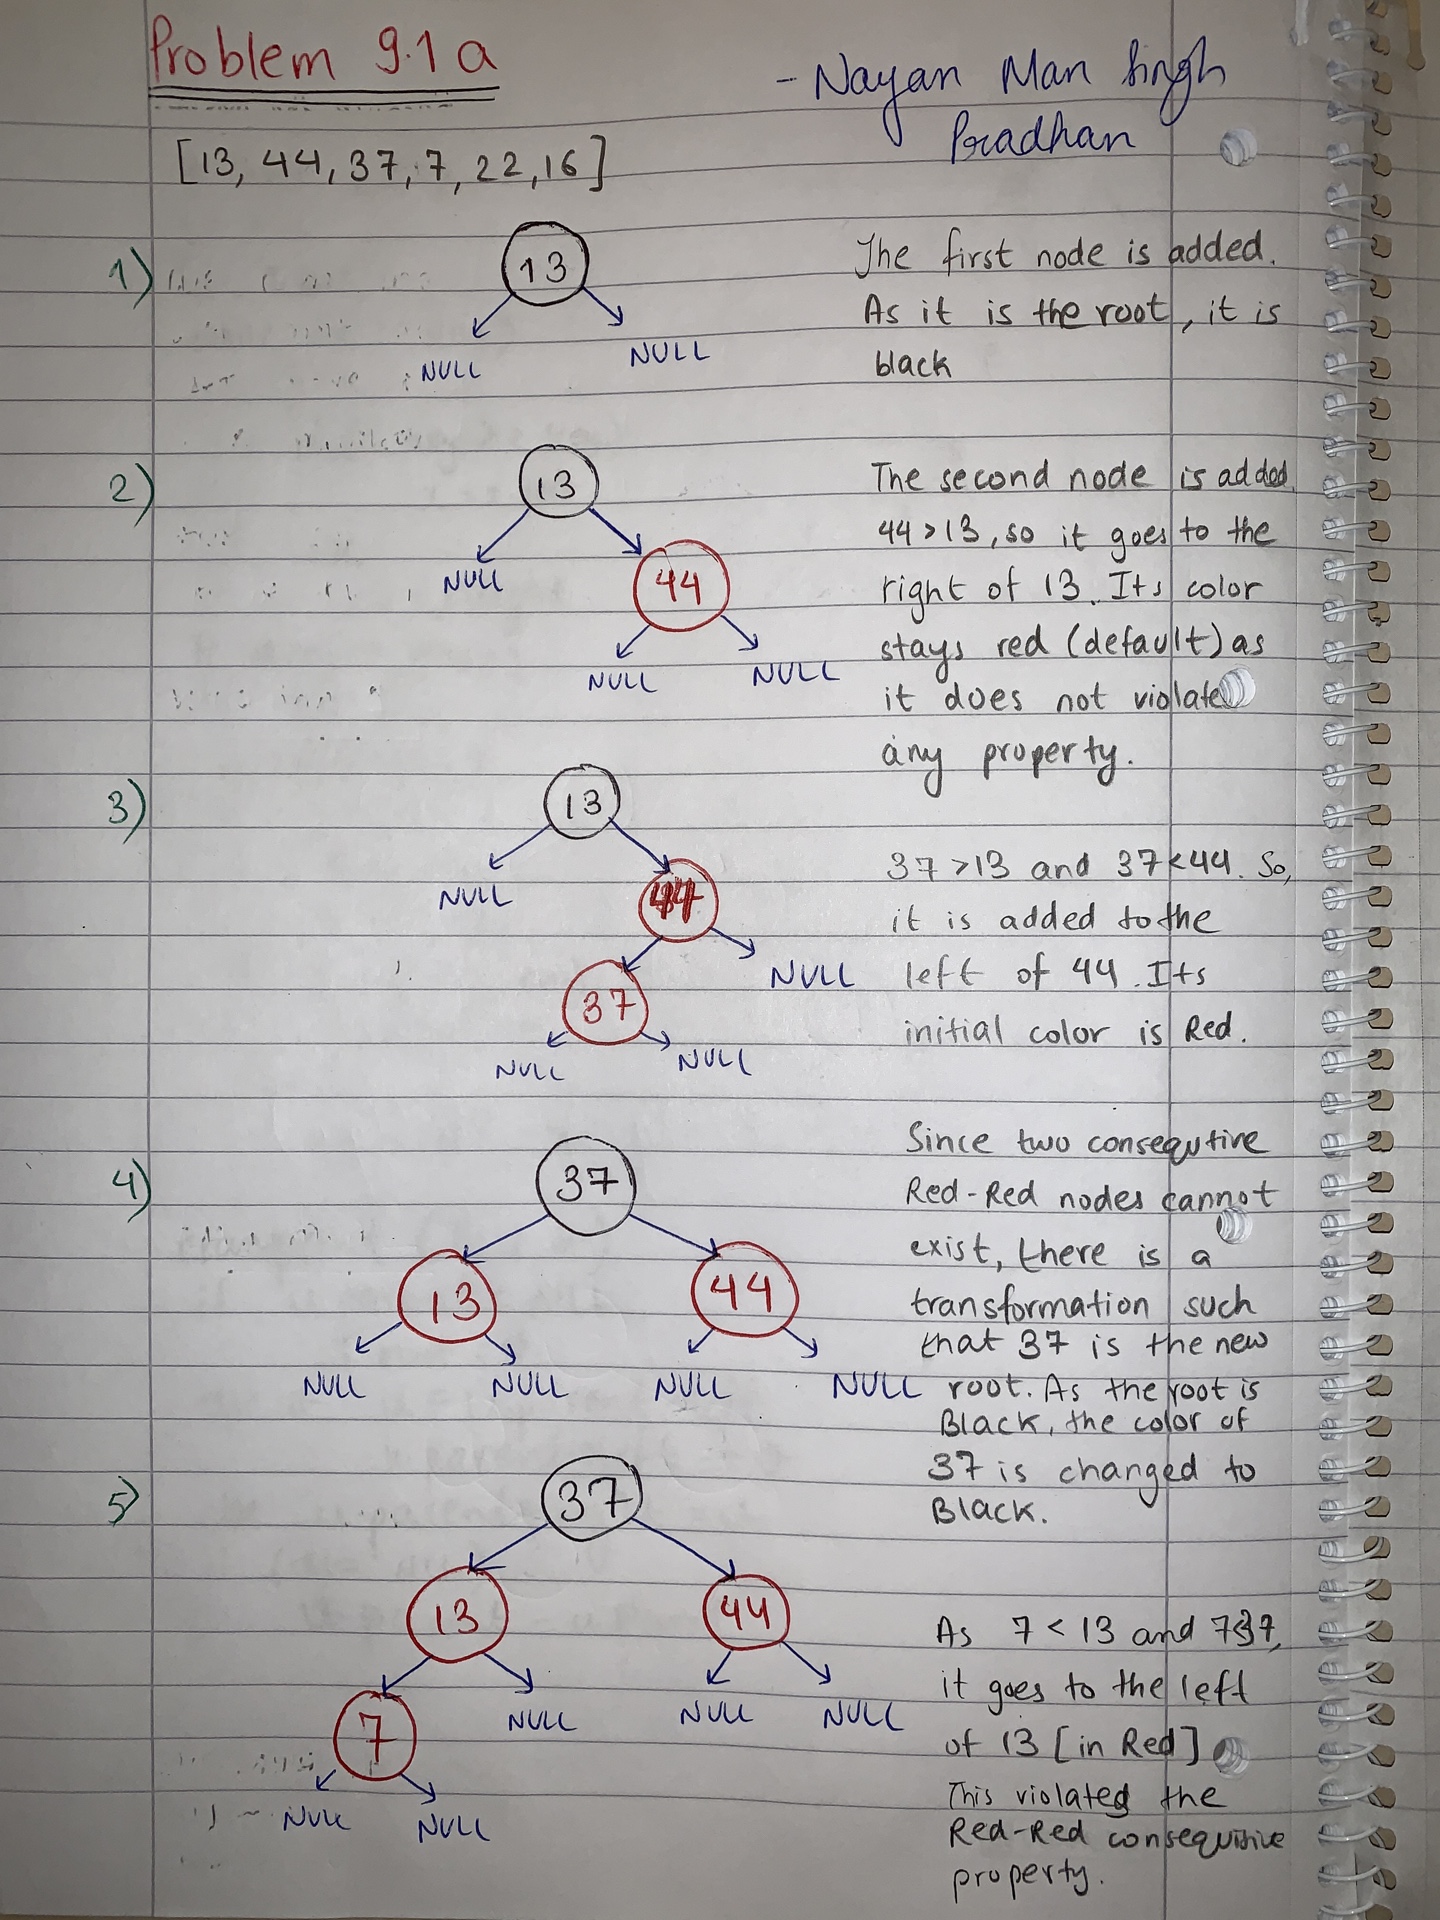 Problem 9.1a
- Nayan Man Singh
Pradhan
[13, 44, 37, 7, 22, 16]
1)
13
NULL NULL
The first node is added.
As it is the root, it is
black
2)
13
NULL 44
NULL NULL
The second node is added
44 > 13, so it goes to the
right of 13. Its color
stays red (default) as
it does not violate
any property.
3)
13
NULL 44
37 NULL
NULL NULL
37 > 13 and 37 < 44. So,
it is added to the
left of 44. Its
initial color is Red.
4)
37
13 44
NULL NULL NULL NULL
Since two consequtive
Red-Red nodes cannot
exist, there is a
transformation such
that 37 is the new
root. As the root is
Black, the color of
37 is changed to
Black.
5)
37
13 44
7 NULL NULL NULL
NULL NULL
As 7 < 13 and 7<37,
it goes to the left
of 13 [in Red]
This violated the
Red-Red consequitive
property.